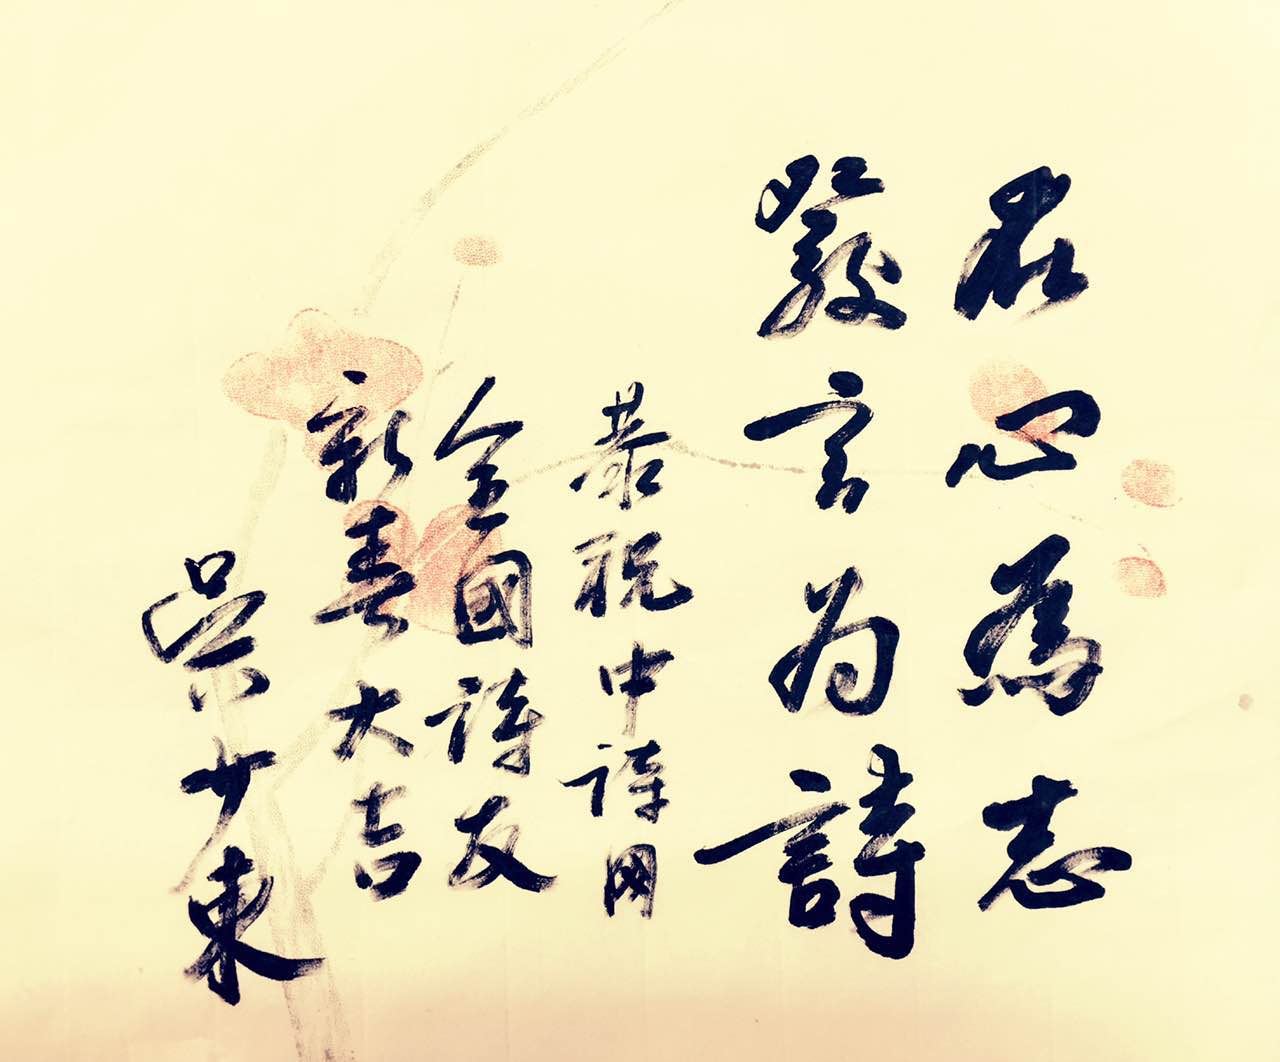 在心為志
發言为詩
恭祝中詩网
全國詩友
新春大吉
吳少東